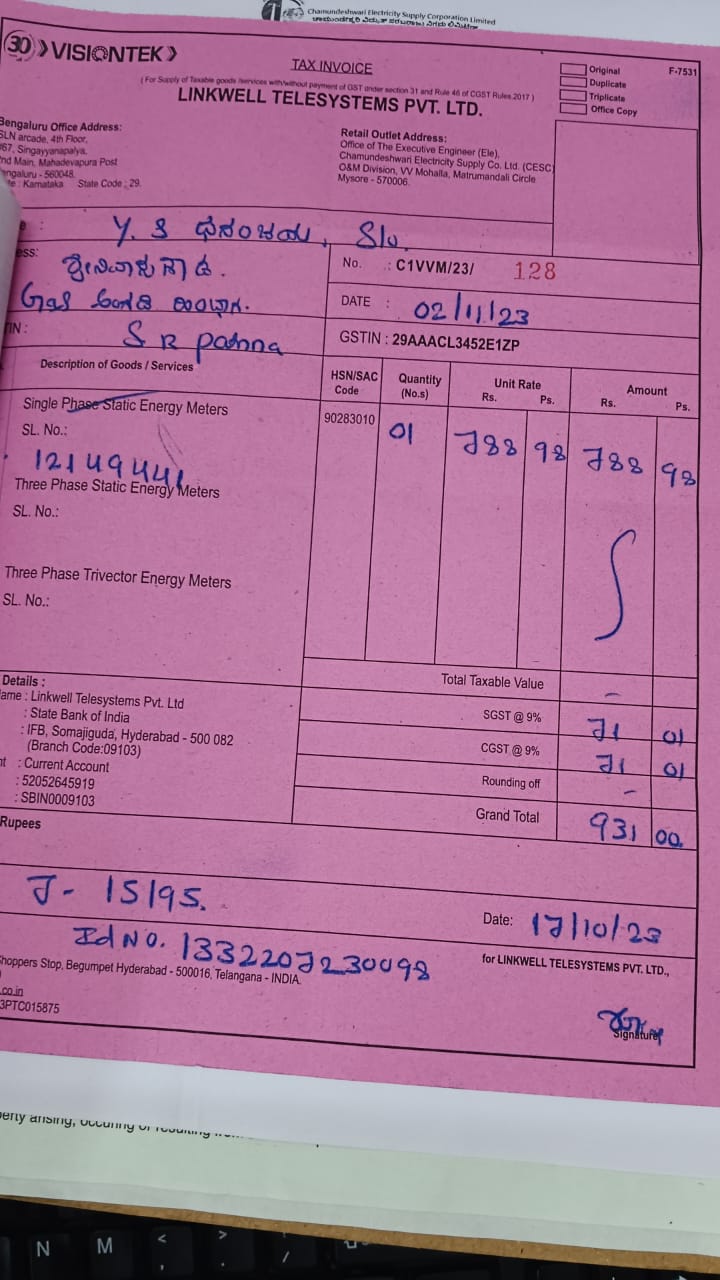 Chamundeshwari Electricity Supply Corporation Limited
ಚಾಮುಂಡೇಶ್ವರಿ ವಿದ್ಯುತ್ ಸರಬರಾಜು ನಿಗಮ ನಿಯಮಿತ
30 VISIONTEK
TAX INVOICE
( For Supply of Taxable goods /services with/without payment of GST under section 31 and Rule 46 of CGST Rules 2017 )
LINKWELL TELESYSTEMS PVT. LTD.
Original
Duplicate
Triplicate
Office Copy
F-7531
Bengaluru Office Address:
SLN arcade, 4th Floor,
67, Singayyanapalya,
nd Main, Mahadevapura Post
engaluru - 560048.
te : Karnataka State Code : 29.
Retail Outlet Address:
Office of The Executive Engineer (Ele),
Chamundeshwari Electricity Supply Co. Ltd. (CESC)
O&M Division, VV Mohalla, Matrumandali Circle
Mysore - 570006.
e : Y. ಕೆ ಧನಂಜಯ, S/o.
ess: ಶ್ರೀನಿವಾಸ
No. : C1VVM/23/ 128
DATE : 02/11/23
IN : S R patna
GSTIN : 29AAACL3452E1ZP
Description of Goods / Services
HSN/SAC Code
Quantity (No.s)
Unit Rate Rs. Ps.
Amount Rs. Ps.
Single Phase Static Energy Meters
90283010 01 788 98 788 98
SL. No.:
12149441
Three Phase Static Energy Meters
SL. No.:
Three Phase Trivector Energy Meters
SL. No.:
Total Taxable Value -
SGST @ 9% 71 01
CGST @ 9% 71 01
Rounding off -
Grand Total 931 00.
Details :
ame : Linkwell Telesystems Pvt. Ltd
: State Bank of India
: IFB, Somajiguda, Hyderabad - 500 082
(Branch Code:09103)
nt : Current Account
: 52052645919
: SBIN0009103
Rupees
J- 15195.
Date: 17/10/23
Id No. 1332207230098
for LINKWELL TELESYSTEMS PVT. LTD.,
hoppers Stop, Begumpet Hyderabad - 500016, Telangana - INDIA.
.co.in
3PTC015875
Signature
perty arising, occuring or resulting
N M < , > . /